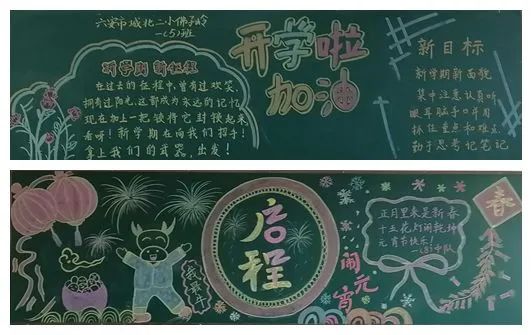 六安市城北二小佛子岭
一(5)班
新学期 新征程
在过去的征程中,曾有过欢笑,
拥有过阳光,这都成为永远的记忆
现在加上一把锁将它封锁起来
看呀!新学期在向我们招手!
拿上我们的武器,出发!
开学啦
加油
新目标
新学期新面貌
集中注意认真听
眼耳脑手口并用
抓住重点和难点
勤于思考记笔记
启程
闹元
宵
正月里来是新春
十五花灯闹乾坤
元宵节快乐!
春